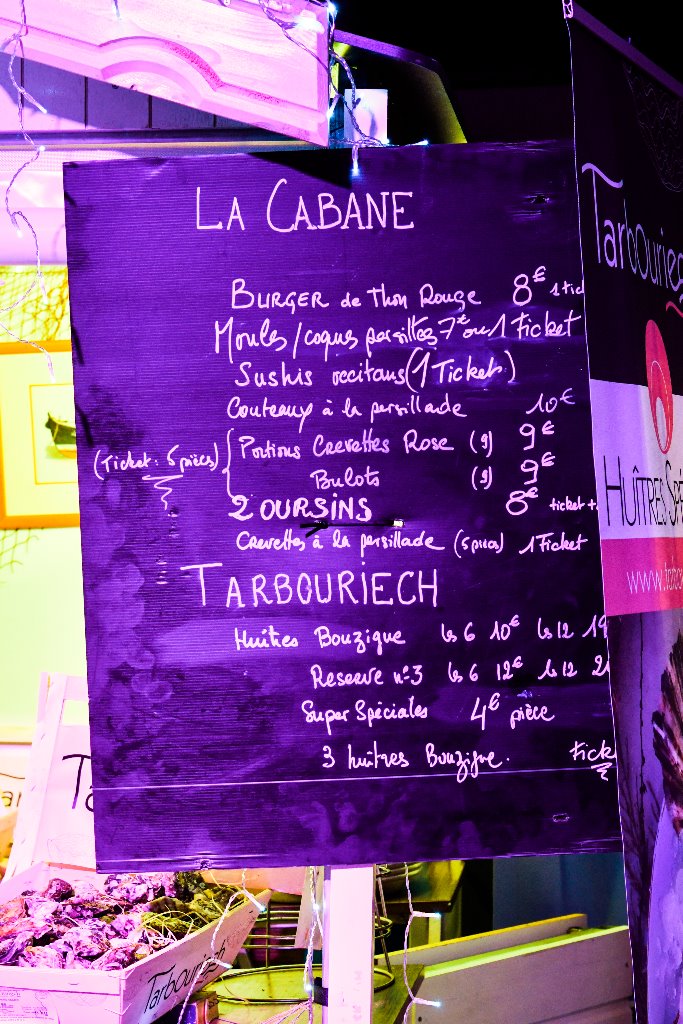 LA CABANE
BURGER de Thon Rouge 8€ 1 tic
Moules/coques persillées 7€ ou 1 Ticket
Sushis occitans (1 Tickets)
Couteaux à la persillade 10€
(Ticket: 5 pièces)
Portions Crevettes Rose (9) 9€
Bulots (9) 9€
2 OURSINS 8€ ticket +
Crevettes à la persillade (5 pièces) 1 Ticket
TARBOURIECH
Huîtres Bouzigue les 6 10€ les 12 19
Reserve n°3 les 6 12€ les 12 2
Super Spéciales 4€ pièce
3 huîtres Bouzigue. tick
Tarbouriec
HUÎTRES SPÉ
www.tarbo
Tarbouriech